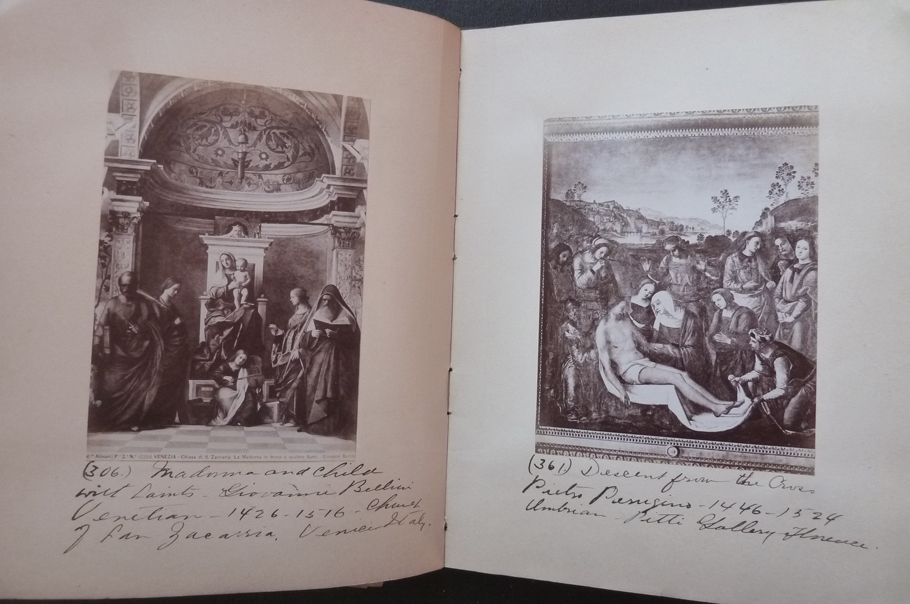 VENEZIA - Chiesa di S. Zaccaria. La Madonna in trono e quattro Santi.
(306.) Madonna and Child
with Saints - Giovanni Bellini
Venetian - 1426 - 1516 - Church
of San Zacaria, Venice Italy.
(361) Descent from the Cross
Pietro Perugino - 1446 - 1524
Umbrian - Pitti Gallery Florence.